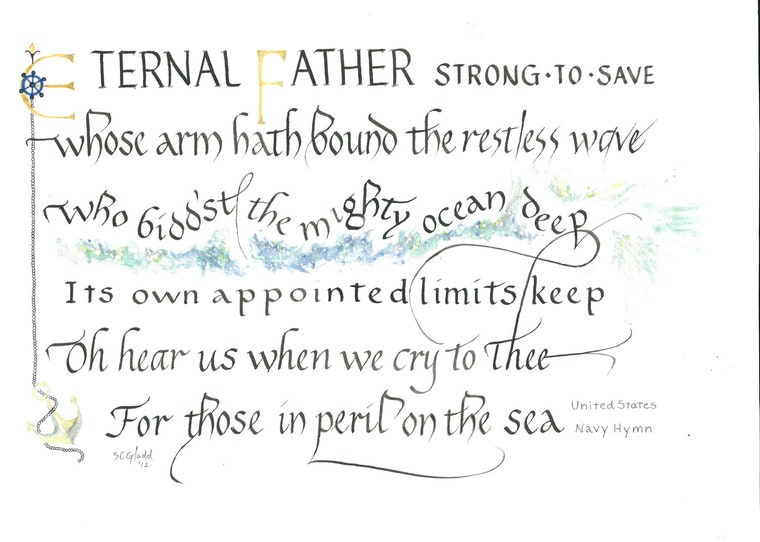 ETERNAL FATHER STRONG·TO·SAVE
whose arm hath bound the restless wave
who bidd'st the mighty ocean deep
Its own appointed limits keep
Oh hear us when we cry to Thee
For those in peril on the sea
United States
Navy Hymn
SCGladd
'12